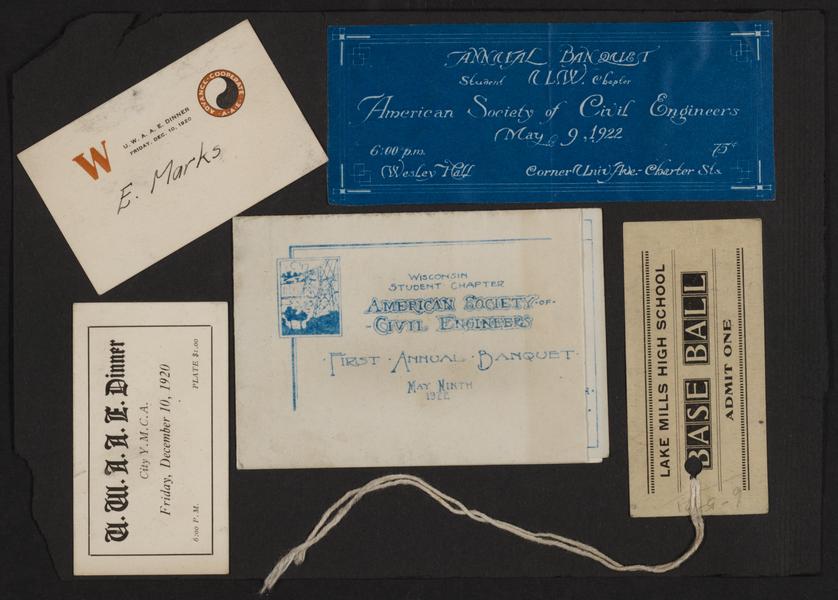 W
U. W. A. A. E. DINNER
FRIDAY, DEC. 10, 1920
ADVANCE-COOPERATE
E. Marks
ANNUAL BANQUET
Student U.W. Chapter
American Society of Civil Engineers
May 9, 1922
6:00 p.m. 75¢
Wesley Hall Corner Univ. Ave.- Charter Sts.
WISCONSIN
STUDENT CHAPTER
AMERICAN SOCIETY·OF·
-CIVIL ENGINEERS
·FIRST·ANNUAL·BANQUET·
MAY NINTH
1922
U. W. A. A. E. Dinner
City Y.M.C.A.
Friday, December 10, 1920
6:00 P. M. PLATE $1.00
LAKE MILLS HIGH SCHOOL
BASE BALL
ADMIT ONE